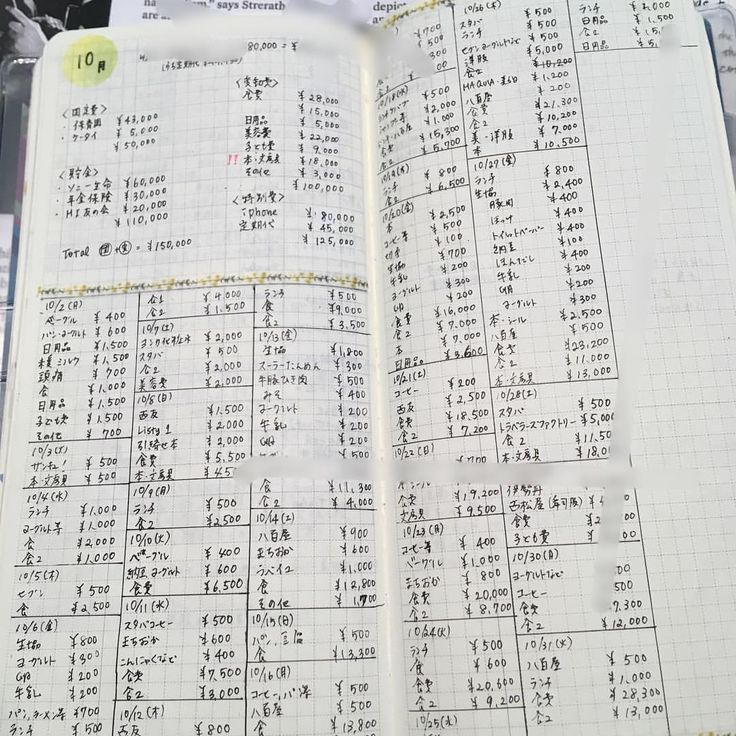 10月
80,000 = ¥
<固定費>
・保育園 ¥43,000
・ケータイ ¥5,000
¥50,000
<貯金>
・ソニー生命 ¥60,000
・年金保険 ¥30,000
・HI友の会 ¥20,000
¥110,000
Total 固+貯 = ¥150,000
<変動費>
食費 ¥28,000
¥15,000
日用品 ¥5,000
美容費 ¥22,000
子ども費 ¥9,000
!! 本・文房具 ¥18,000
その他 ¥3,000
¥100,000
<特別費>
iphone ¥80,000
定期代 ¥45,000
¥125,000
10/2(月)
ベーグル ¥400
パン・ヨーグルト ¥600
日用品 ¥1,500
¥1,500
頭痛 ¥700
食 ¥1,000
日用品 ¥1,500
子ども費 ¥1,500
その他 ¥700
10/3(火)
¥500
本・文房具 ¥500
10/4(水)
ランチ ¥1,000
ヨーグルト等 ¥1,000
食 ¥2,000
食2 ¥1,000
10/5(木)
セブン ¥500
食 ¥2,500
10/6(金)
生協 ¥800
ヨーグルト ¥300
卵 ¥200
牛乳 ¥200
パン,ラーメン等 ¥700
ランチ ¥500
食1 ¥4,000
食2 ¥1,500
10/7(土)
¥2,000
スタバ ¥500
食2 ¥2,000
美容費 ¥2,000
10/8(日)
西友 ¥1,500
¥2,000
引寄せ本 ¥2,000
食費 ¥5,500
本・文房具
10/9(月)
ランチ ¥500
食2 ¥2,500
10/10(火)
ベーグル ¥400
納豆 ヨーグルト ¥600
食費 ¥6,500
10/11(水)
スタバコーヒー ¥500
まちおか ¥600
こんにゃくなど ¥400
食費 ¥7,500
食2 ¥3,000
10/12(木)
西友 ¥800
ランチ ¥500
食 ¥9,000
食2 ¥3,500
10/13(金)
生協 ¥1,800
スーラータンめん ¥300
牛豚ひき肉 ¥500
みそ ¥400
ヨーグルト ¥200
牛乳 ¥200
卵 ¥200
¥500
食 ¥11,300
食2 ¥4,000
10/14(土)
八百屋 ¥900
まちおか ¥600
¥1,000
食 ¥12,800
その他 ¥1,700
10/15(日)
¥500
食 ¥13,300
10/16(月)
コーヒー,パン等 ¥500
八百屋 ¥500
食 ¥13,800
¥700
¥500
¥300
10/18(水)
¥500
¥2,000
¥1,000
食費 ¥15,300
食2 ¥5,700
10/19(木)
ランチ ¥800
食2 ¥6,500
10/20(金)
本 ¥2,500
コーヒー等 ¥500
切手 ¥100
生協 ¥700
牛乳 ¥200
ヨーグルト ¥300
卵 ¥200
食費 ¥16,000
食2 ¥7,000
本 ¥7,000
日用品 ¥3,500
10/21(土)
コーヒー ¥200
西友 ¥2,500
食費 ¥18,500
食2 ¥7,200
10/22(日)
食費 ¥19,200
文房具 ¥9,500
10/23(月)
コーヒー等 ¥400
ベーグル ¥1,000
まちおか ¥800
食費 ¥20,000
食2 ¥8,700
10/24(火)
ランチ ¥500
食 ¥600
食費 ¥20,600
食2 ¥9,200
10/25(水)
10/26(木)
スタバ ¥500
ランチ ¥500
セブン ヨーグルトなど ¥500
洋服 ¥5,000
食2 ¥10,200
¥1,200
八百屋 ¥200
食費 ¥21,300
食2 ¥10,200
美・洋服 ¥7,000
本 ¥10,500
10/27(金)
ランチ ¥800
生協 ¥2,400
豚肉 ¥400
ほっけ ¥400
トイレットペーパー ¥400
納豆 ¥100
ほんだし ¥400
牛乳 ¥200
卵 ¥200
ヨーグルト ¥300
本・シール ¥2,500
八百屋 ¥500
食費 ¥23,200
食2 ¥11,000
本・文房具 ¥13,000
10/28(土)
スタバ ¥500
トラベラーズファクトリー ¥5,000
食2 ¥11,500
本・文房具 ¥18,000
伊勢丹
西松屋
食費
子ども費
10/30(月)
ヨーグルトなど
コーヒー 500
食 7,300
食2 ¥12,000
10/31(火)
八百屋 ¥500
ランチ ¥1,000
食費 ¥28,300
食2 ¥13,000
ランチ
日用品 ¥1,500
食2
日用品